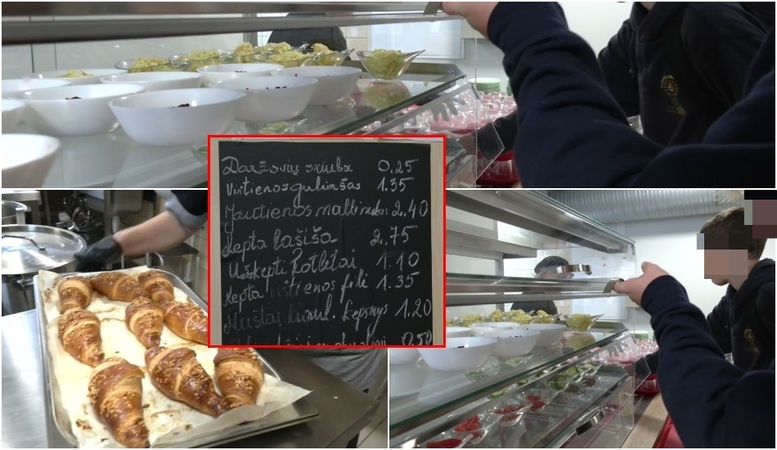 Daržovių sriuba 0,25
Vištienos guliašas 1.35
Jautienos maltinukas 2.40
Kepta lašiša 2.75
Užkepti kotletai 1.10
Kepta vištienos filė 1.35
1.20
0.50